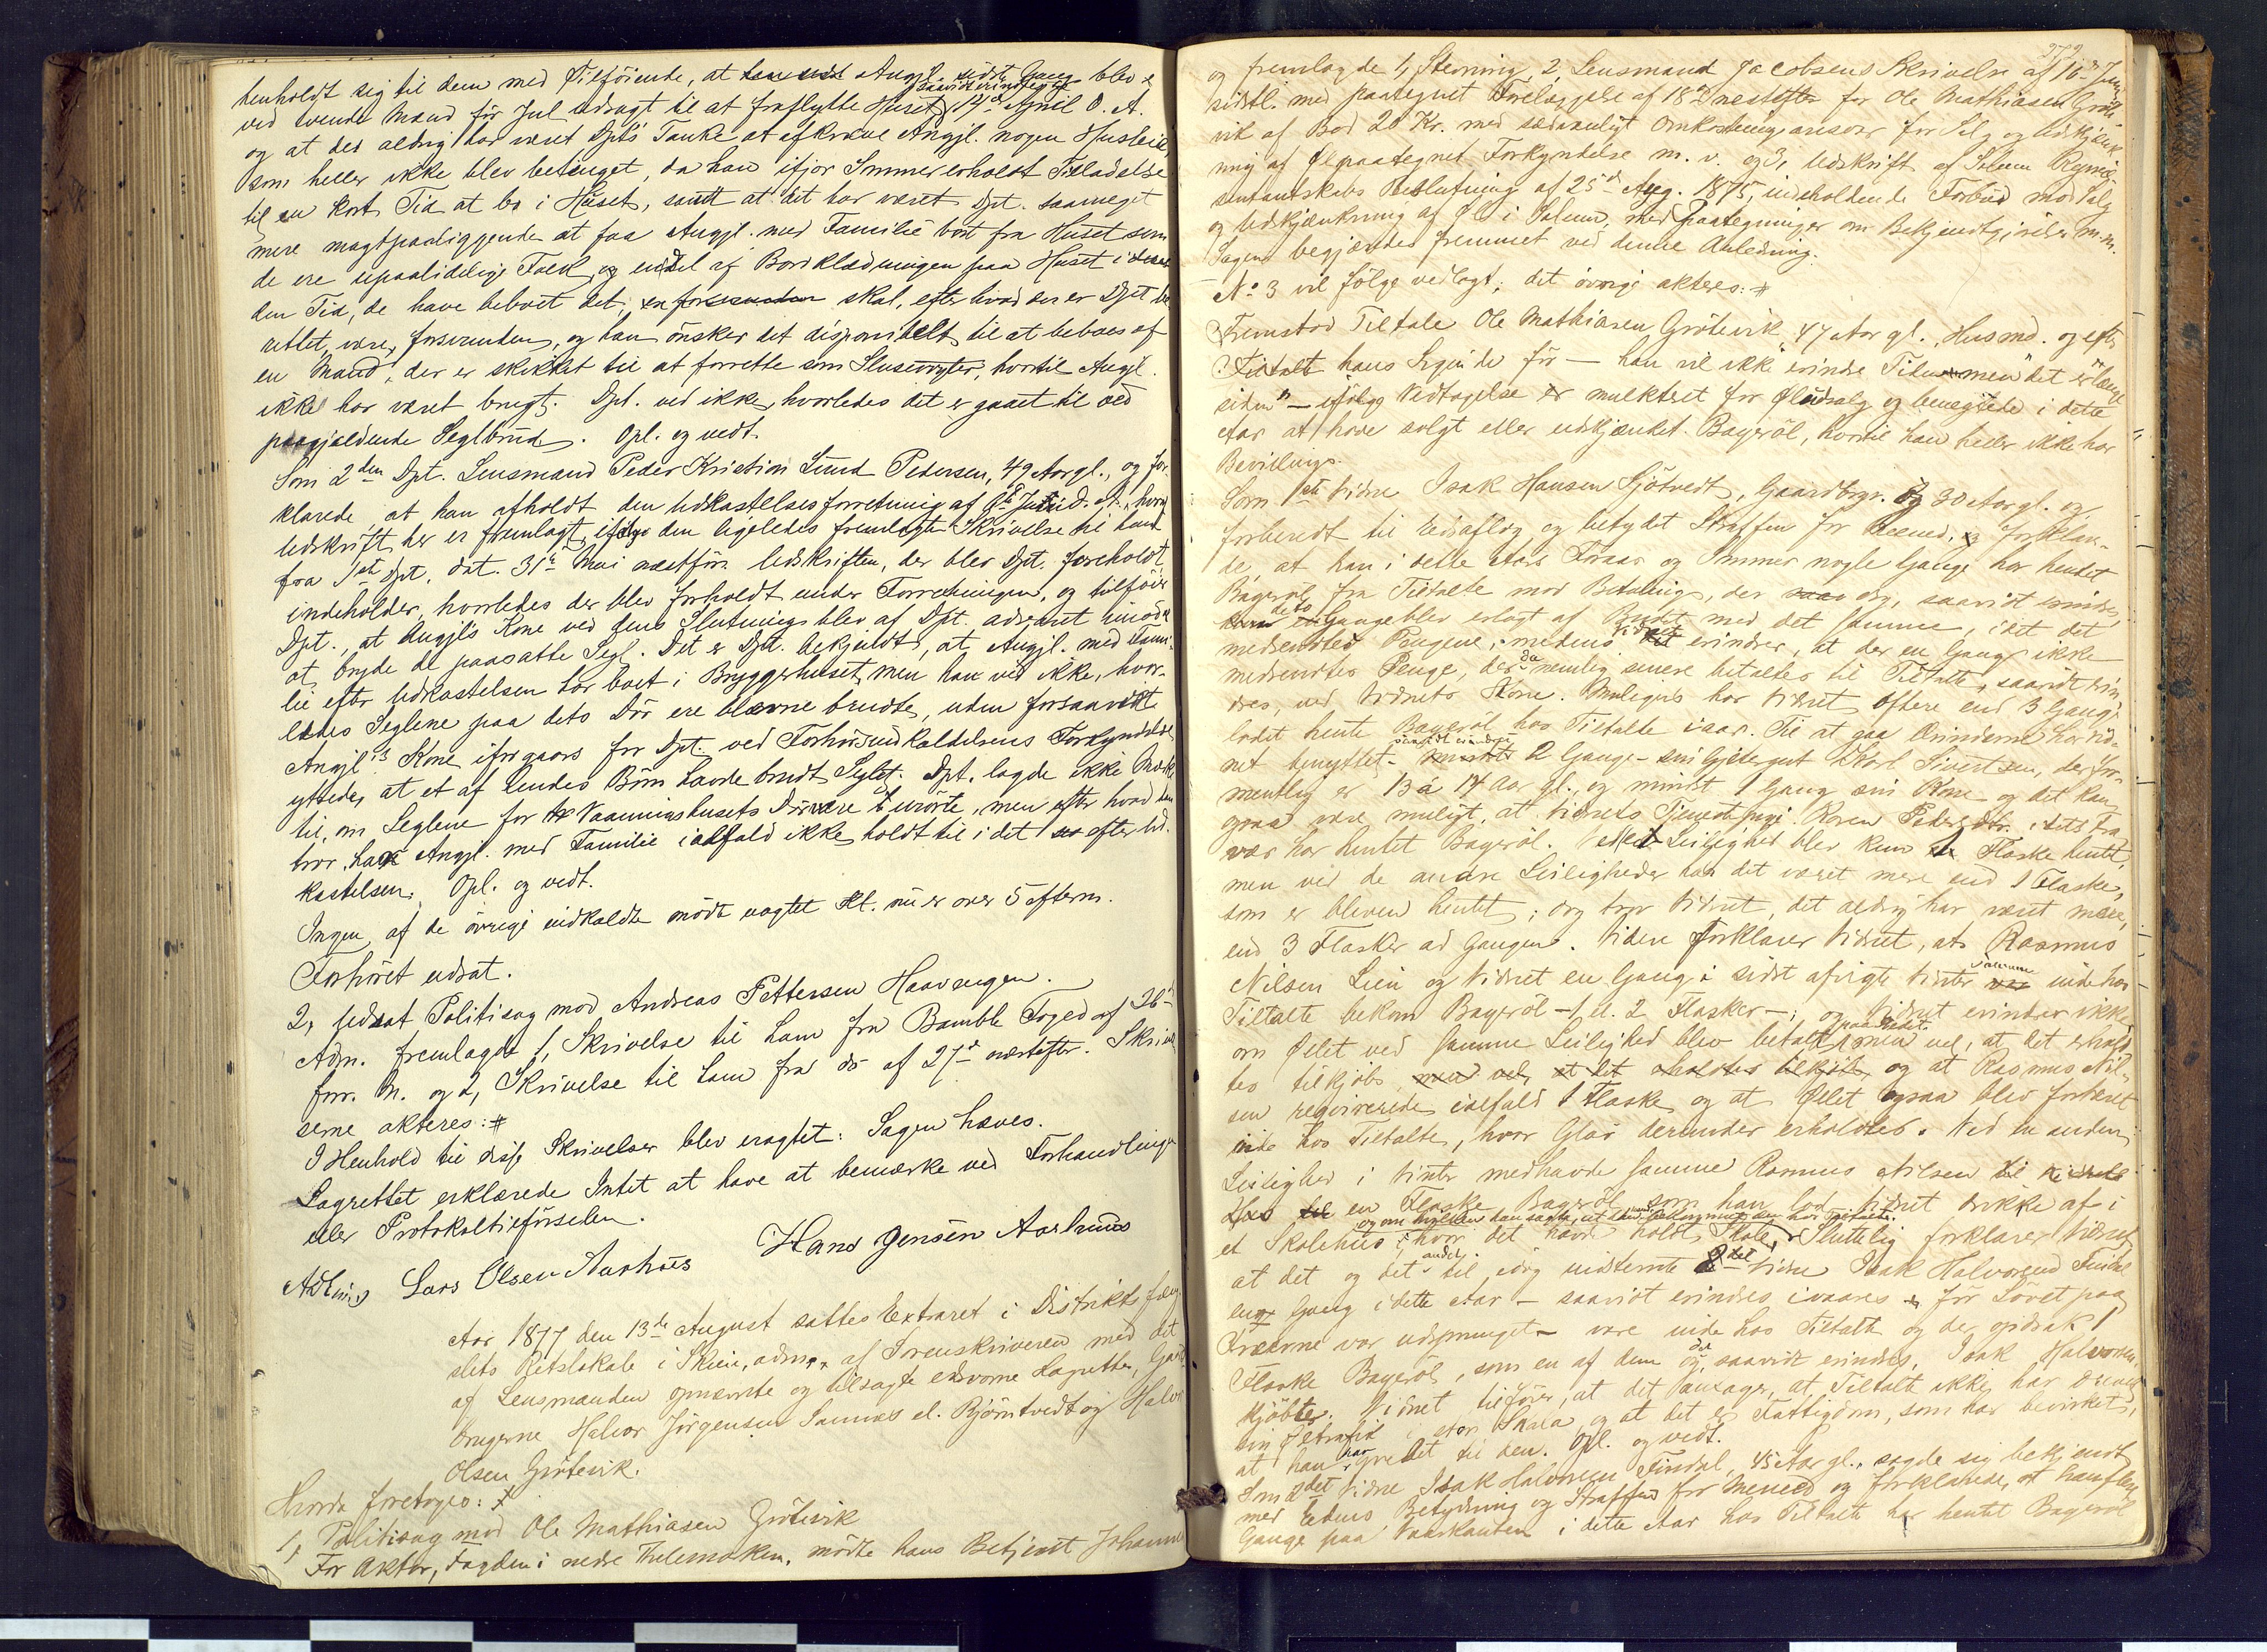 henholdt sig til dem med Tilføiende, at Angjl. sidste Gang blev
ved tvende Mænd før Jul udsagt til at fraflytte Huset saavidt erindres til 14de April D. A.
og at det aldrig har været Dpts Tanke at afkræve Angjl. nogen Husleie,
som heller ikke blev betinget, da han ifjor Sommer erholdt Tilladelse
til en kort Tid at bo i Huset, samt at det har været Dpt. saameget
mere magtpaaliggende at faa Angjl. med Familie bort fra Huset som
de ere upaalidelige Folk, og endel af Bordklædningen paa Huset i
den Tid, de have beboet det, skal, efter hvad der er Dpt. be-
rettet, være forsvunden, og han ønsker det disponibelt til at beboes af
en Mand, der er skikket til at forrette som Slusevogter, hvortil Angjl.
ikke har været brugt. Dpt. ved ikke, hvorledes det er gaaet til ved
paagjældende Seglbrud. Opl. og vedt.
Som 2den Dpt. Lensmand Peder Kristian Lund Pedersen, 49 Aar gl., og for-
klarede, at han afholdt den Udkastelsesforretning af 9de Juni d. A., hvoraf
Udskrift her er fremlagt, ifølge den ligeledes fremlagte Skrivelse til ham
fra 1ste Dpt. dat. 31te Mai næstfør. Udskriften, der blev Dpt. foreholdt,
indeholder, hvorledes der blev forholdt under Forretningen, og tilføier
Dpt., at Angjls Kone ved dens Slutning blev af Dpt. advaret imod
at bryde de paasatte Segl. Det er Dpt. bekjendt, at Angjl. med Fami-
lie efter Udkastelsen har boet i Bryggerhuset, men han ved ikke, hvor-
ledes Seglene paa dets Dør ere blevne brudte, uden forsaavidt
Angjls Kone iforgaars for Dpt. ved Forhørsindkaldelsens Forkyndelse
yttrede, at et af hendes Børn havde brudt Seglet. Dpt. lagde ikke Mærke
til, om Seglene for Vaaningshusets Dør være urørte, men efter hvad han
tror, har Angjl. med Familie ialfald ikke holdt til i det efter Ud-
kastelsen. Opl. og vedt.
Ingen af de øvrige indkaldte mødte uagtet Kl. nu er over 5 efterm.
Forhøret udsat.
2, Udsat Politisag mod Andreas Pettersen Haavengen.
Adm. fremlagde 1, Skrivelse til ham fra Bamble Foged af 26de
forr. M. og 2, Skrivelse til ham fra do af 27de næstefter. Skrivel-
serne akteres: #
I Henhold til disse Skrivelser blev eragtet: Sagen hæves.
Lagrettet erklærede Intet at have at bemærke ved Forhandlingen
eller Protokoltilførselen.
Lars Olsen Aarhus Hans Jensen Aarhuus
Aar 1877 den 13de August sattes Extraret i Distriktsfæng-
slets Retslokale i Skien, adm. af Sorenskriveren med det
af Lensmanden opnævnte og tilsagte edsvorne Lagrette, Gaard-
brugerne Halvor Jørgensen Sannæs el. Bjørntvedt og Halvor
Olsen Grøtevik.
Hvorda foretoges:
1, Politisag mod Ole Mathiasen Grøtevik
For Aktor, Fogden i nedre Thelemarken, mødte hans Betjent Johannes
272
og fremlagde 1, Stevning, 2, Lensmand Jacobsens Skrivelse af 16de Juni
sidstl. med paategnet Forelæggelse af 18de næstefter for Ole Mathiasen Grøte-
vik af Bod 20 Kr. med sædvanligt Omkostningsansvar for Salg og Udskjænk-
ning af Øl paategnet Forkyndelse m. v. og 3, Udskrift af Solum Repræ-
sentantskabs Beslutning af 25de Aug. 1875, indeholdende Forbud mod Salg
og Udskjænkning af Øl i Solum, med Paategninger om Bekjendtgjørelse m.m.
Sagen begjæredes fremmet ved denne Anledning.
No 3 vil følge vedlagt; det øvrige akteres: #
Fremstod Tiltalte Ole Mathiasen Grøtevik, 47 Aar gl., Husmd. og efter
Tiltalte hans Sigende før — han vil ikke erindre Tiden men det "er længe
siden" — ifølge Vedtagelse er mulkteret for Øludsalg og benegtede i dette
Aar at have solgt eller udskjænket Bayerøl, hvortil han heller ikke har
Bevilling.
Som 1ste Vidne Isak Hansen Gjøtvedt, Gaardbrgr. 30 Aar gl. og
forberedt til Edsaflæg og betydet Straffen for Meened, forklare-
de, at han i dette Aars Foraar og Sommer nogle Gange har hentet
Bayerøl fra Tiltalte mod Betaling, der dog, saavidt erindres,
Gange blev erlagt af Budet med det samme, idet det
medsendtes Pengene, medens Vidnet erindrer, at der en Gang ikke
medsendtes Penge, der da nemlig senere betaltes til Tiltalte, saavidt erin-
dres, ved Vidnets Kone. Muligens har Vidnet oftere end 3 Gange
ladet hente Bayerøl hos Tiltalte iaar. Til at gaa Ærinderne har Vid-
net benyttet saavidt erindres 2 Gange sin Gjætergut Karl Sivertsen, der for-
mentlig er 13 à 14 Aar gl., og mindst 1 Gang sin Kone og det kan
ogsaa være muligt, at Vidnets Tjenestepige Karen Pedersdtr. i dets Fra-
vær har hentet Bayerøl. Leilighed blev kun 1 Flaske hentet,
men ved de andre Leiligheder har det været mere end 1 Flaske,
som er bleven hentet; dog tror Vidnet, det aldrig har været mere
end 3 Flasker ad Gangen. Videre forklarer Vidnet, at Rasmus
Nilsen Lien og Vidnet en Gang i sidst afvigte Vinter sammen inde hos
Tiltalte bekom Bayerøl — 1 el. 2 Flasker —; og Vidnet erindrer ikke,
om Ølet ved samme Leilighed blev betalt paa Stedet, men vel, at det erhold-
tes tilkjøbs og at Rasmus Nil-
sen reqvirerede ialfald 1 Flaske og at Ølet ogsaa blev fortæret
inde hos Tiltalte, hvor Glas derunder erholdtes. Ved en anden
Leilighed i Vinter medhavde samme Rasmus Nilsen
en Flaske Bayerøl, som han lod Vidnet drikke af i
et Skolehus, hvor det havde holdt Skole. Sluttelig forklarer Vidnet,
at det og det andet til idag indstevnte Vidne Isak Halvorsen Findal
en Gang i dette Aar — saavidt erindres ivaares før Løvet paa
Træerne var udsprunget — vare inde hos Tiltalte og der opdrak 1
Flaske Bayerøl, som en af dem og, saavidt erindres, Isak Halvorsen
kjøbte. Vidnet tilføier, at det antager, at Tiltalte ikke har drevet
sin Øltrafik i stor Skala, og at det er Fattigdom, som har bevirket,
at han har grebet til den. Opl. og vedt.
Som 2det Vidne Isak Halvorsen Findal, 45 Aar gl., sagde sig bekjendt
med Edens Betydning og Straffen for Meened og forklarede, at han flere
Gange paa Vaarkanten i dette Aar hos Tiltalte har hentet Bayerøl